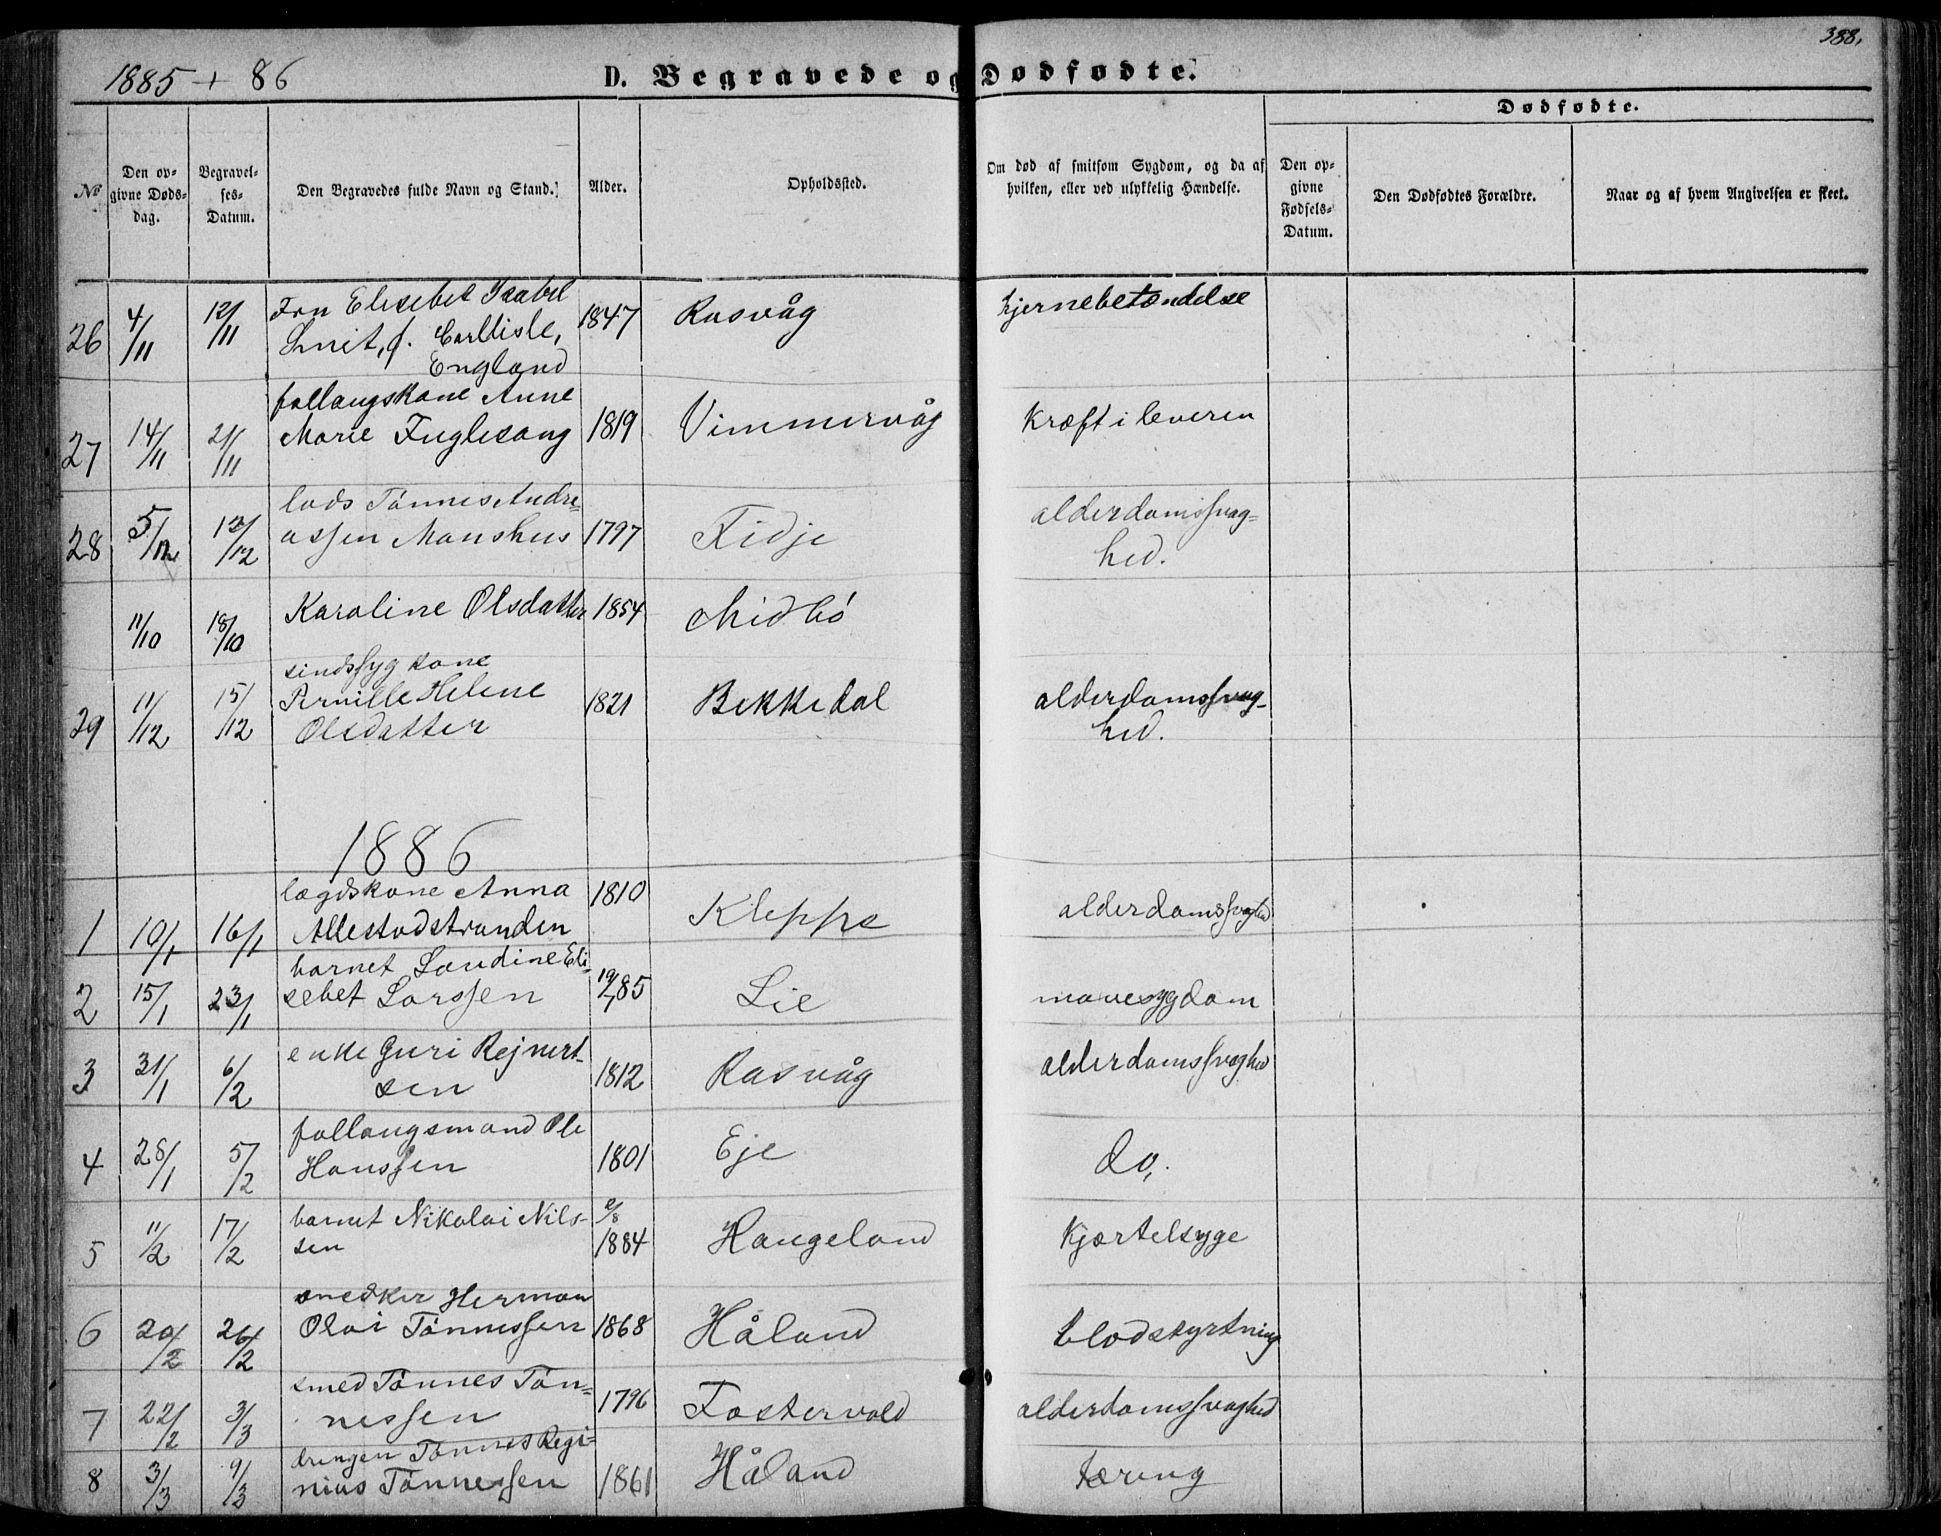 388,
1885 + 86
D. Begravede og Dødfødte.
Dødfødte.
No
Den op-
givne Døds-
dag.
Begravel-
ses-
Datum.
Den Begravedes fulde Navn og Stand.
Alder.
Opholdssted.
Om død af smitsom Sygdom, og da af
hvilken, eller ved ulykkelig Hændelse.
Den op-
givne
Fødsels-
Datum.
Den Dødfødtes Forældre.
Naar og af hvem Angivelsen er skeet.
26 4/11 12/11 Fru Elisebet Isabel
Smit, f. Carllisle, 1847 Rasvåg hjernebetændelse
England
27 14/11 21/11 follangskone Anne
Marie Fuglesang 1819 Vimmervåg kræft i leveren
28 5/12 12/12 lods Tønnes Andre=
assen Monshus 1797 Fidje alderdomssvag=
hed.
11/10 18/10 Karoline Olsdatter 1854 Midbø
29 11/12 15/12 sindssyg kone
Pernille Helene 1821 Bekkedal alderdomssvag-
Olsdatter hed.
1886
1 10/1 16/1 lægdskone Anna 1810
Allestadstranden Kleppe alderdomssvaghed
2 15/1 23/1 barnet Landine Eli-
sebet Larssen 19/7 85 Lie mavesygdom
3 31/1 6/2 enke Guri Rejnert-
sen 1812 Rasvåg alderdomssvaghed
4 28/1 5/2 follaugsmand Ole
Hanssen 1801 Eje do,.
5 11/2 17/2 barnet Nikolai Nils-
sen 2/8 1884 Haugeland Kjertelsyge
6 20/2 26/2 snedker Herman
Olai Tønnessen 1868 Håland blodstyrtning
7 22/2 3/3 smed Tønnes Tøn=
nessen 1796 Fostervold alderdomssvaghed
8 3/3 9/3 drengen Tønnes Regi-
nius Tønnessen 1861 Håland tæring